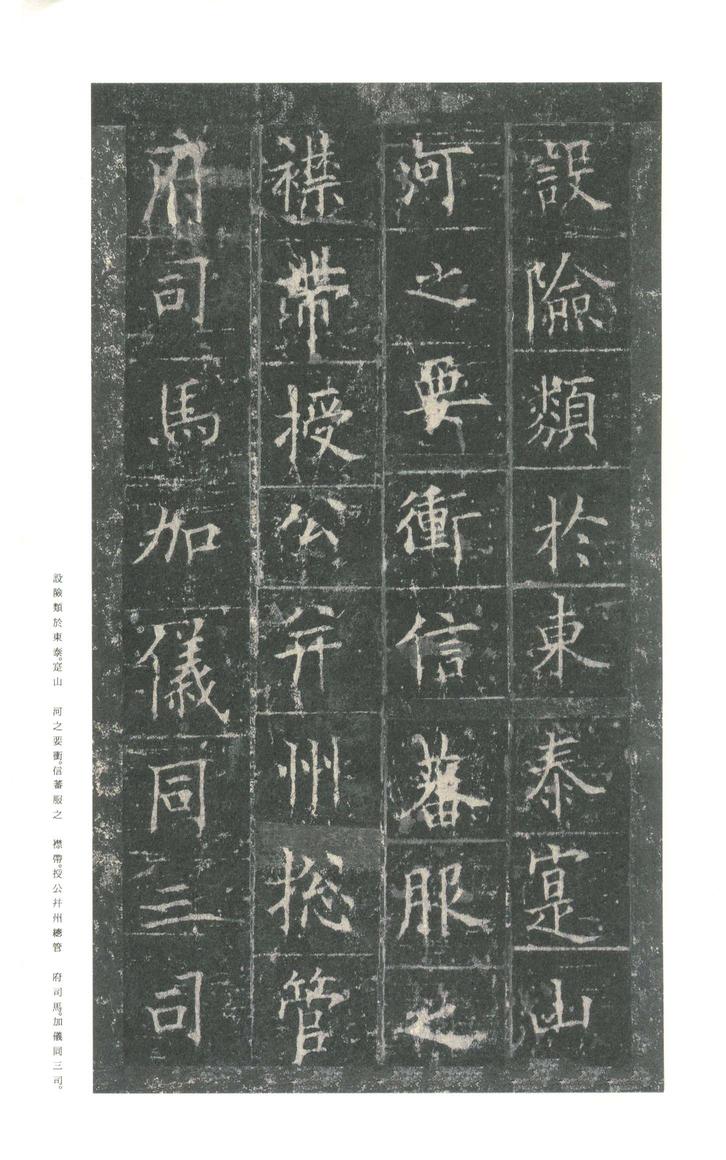 設險類於東泰寔山
河之要衝信蕃服之
襟帶授公并州摠管
府司馬加儀同三司
設險類於東泰。寔山　河之要衝。信蕃服之　襟帶。授公幷州總管　府司馬。加儀同三司。